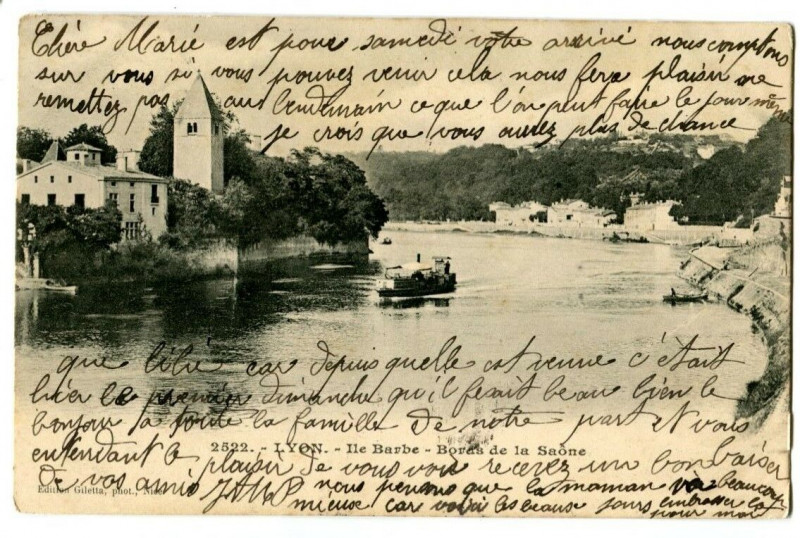 Chère Marie est pour samedi votre arrivé nous comptons
sur vous si vous pouvez venir cela nous fera plaisir ne
remettez pas au lendemain ce que l'on peut faire le jour même
je crois que vous aurez plus de chance
que Lilie car depuis quelle est venue c'était
hier le premier dimanche qu'il fesait beau bien le
bonjour a toute la famille de notre part et vous
entendant le plaisir de vous voir recevez un bon baiser
de vos amis
nous pensons que la maman va beaucoup
mieuse car voici les beaux jours embrasser la
pour moi
2522. - LYON. - Ile Barbe - Bords de la Saône
Edition Giletta, phot., Nice